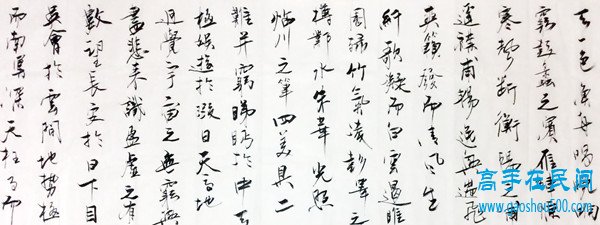 天一色漁舟唱晚響
窮彭蠡之濱雁陣驚
寒聲斷衡陽之浦
遙襟甫暢逸興遄飛
爽籟發而清風生
纖歌凝而白雲遏睢
園綠竹氣凌彭澤之
樽鄴水朱華光照
臨川之筆四美具二
難并窮睇眄於中天
極娛遊於暇日天高地
迥覺宇宙之無窮興
盡悲來識盈虛之有
數望長安於日下目
吳會於雲間地勢極
而南溟深天柱高而
高手在民间